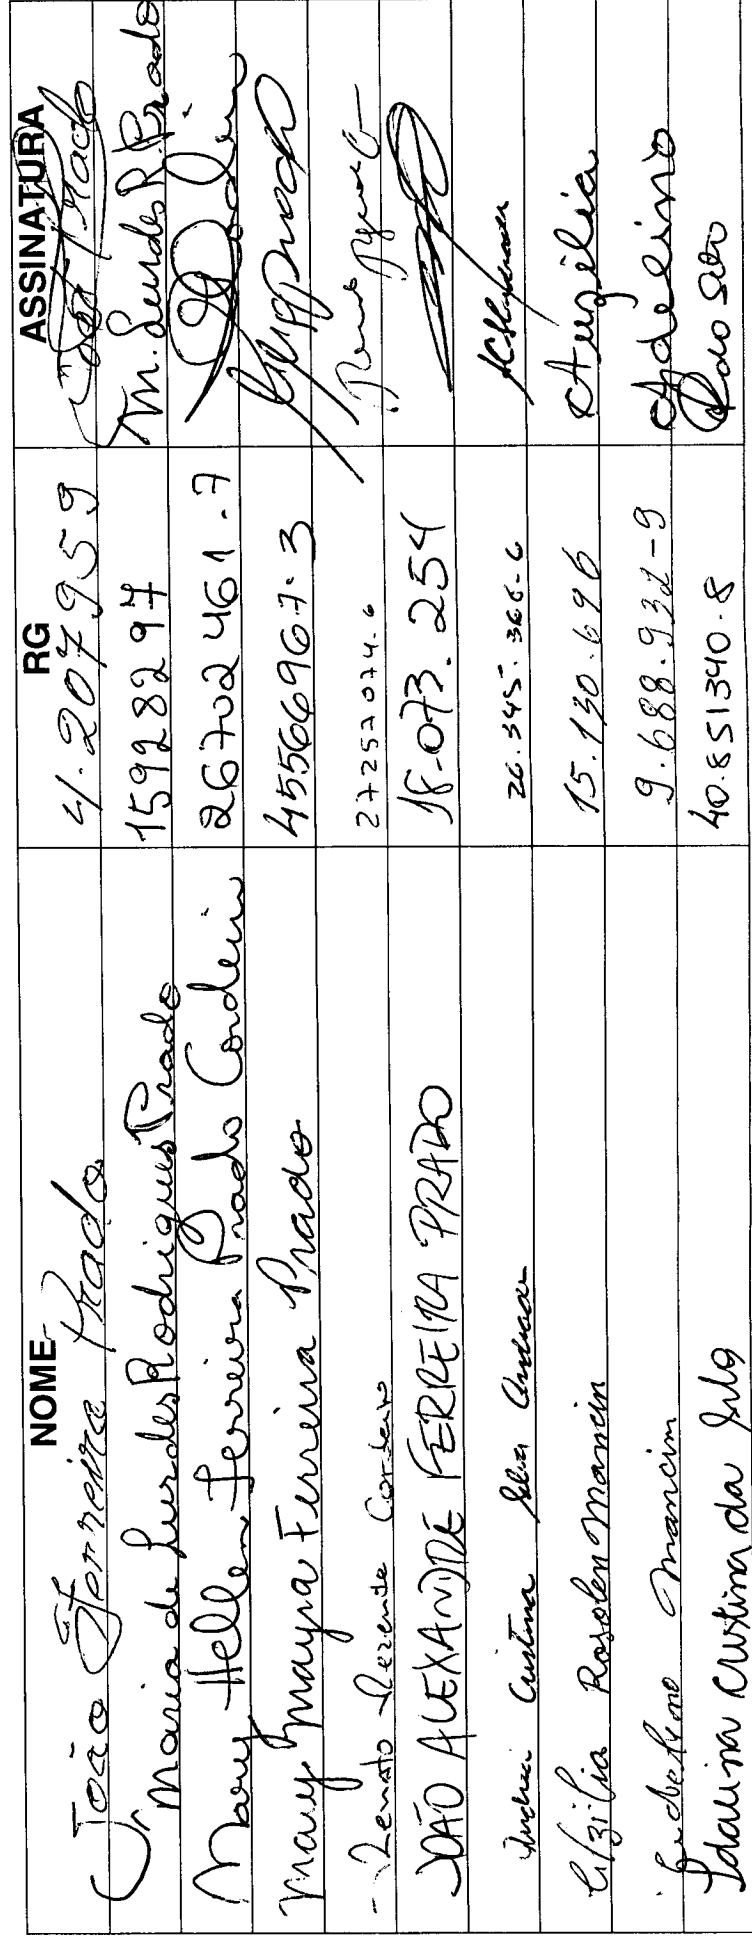 NOME RG ASSINATURA
João Ferreira Prado 4.207959 Prado
Maria de Lurdes Rodrigues Prado 15928297 M. Lurdes R Prado
Mary Hellen Ferreira Prado Cordeiro 26702461-7
Mary Mayra Ferreira Prado 45566967-3
Renato Rezente Cordeiro 27257074-6
JOÃO ALEXANDRE FERREIRA PRADO 18-073.254
Cristina Silva Andrade 26.345.366-6
Rosolen Mancin 15.130.696
Mancim 9.688.932-9 Adelino
Idalina Cristina da Silva 40.851340-8